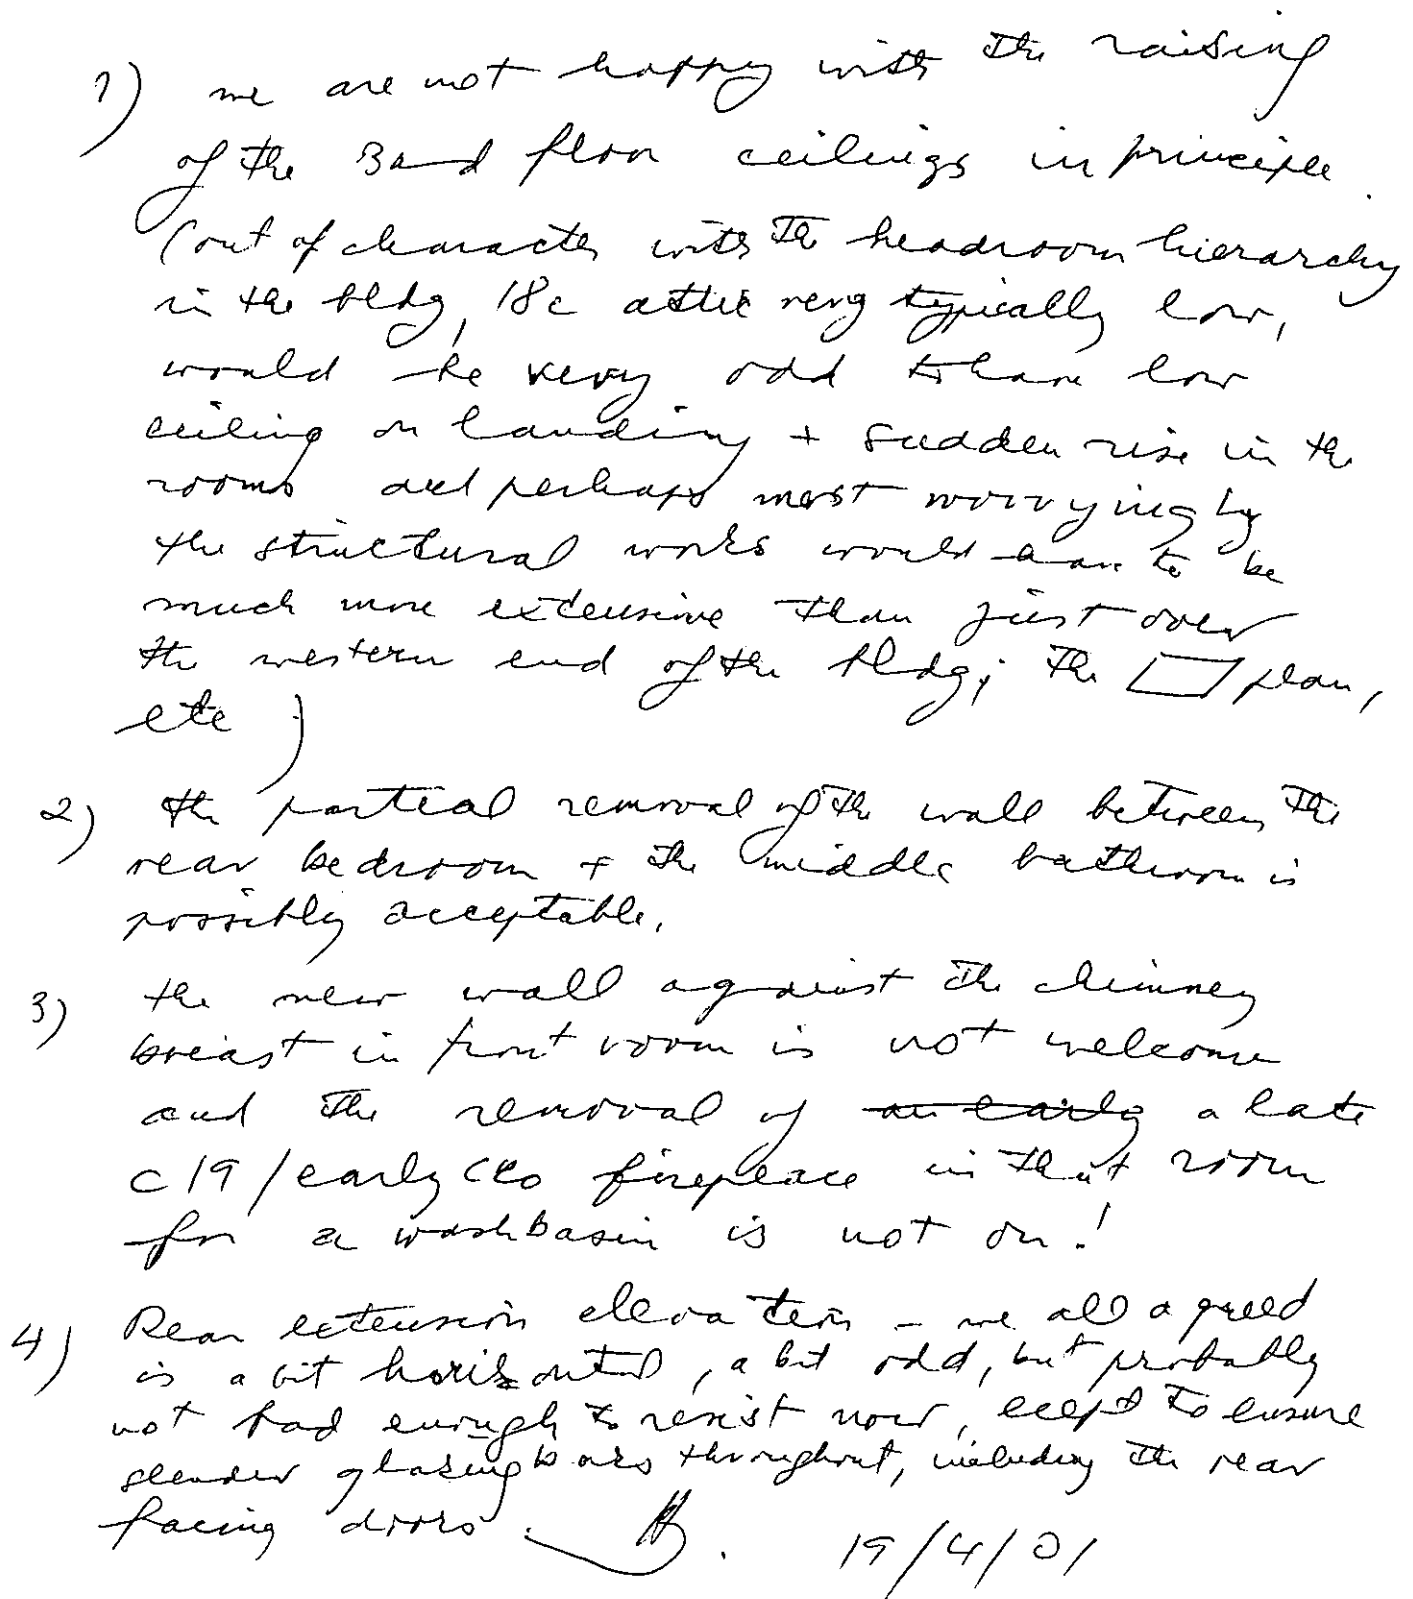 1) we are not happy with the raising
of the 3rd floor ceilings in principle.
(out of character with the headroom hierarchy
in the bldg, 18c attic very typically low,
would be very odd to have low
ceiling on landing + sudden rise in the
rooms and perhaps most worrying by
the structural works would have to be
much more extensive than just over
the western end of the bldg; the plan,
etc )
2) the partial removal of the wall between the
rear bedroom + the middle bathroom is
possibly acceptable.
3) the new wall against the chimney
breast in front room is not welcome
and the removal of an early a late
C19/early C20 fireplace in that room
for a washbasin is not on!
4) Rear extension elevation - we all agreed
is a bit horizontal, a bit odd, but probably
not bad enough to resist now, ecept to ensure
slender glazing bars throughout, including the rear
facing doors.
19/4/01